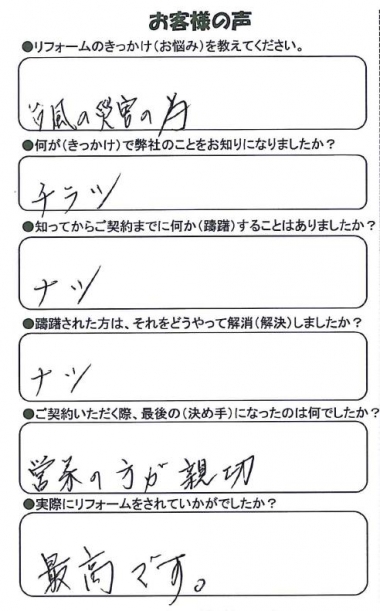 お客様の声
●リフォームのきっかけ(お悩み)を教えてください。
台風の災害の為
●何が(きっかけ)で弊社のことをお知りになりましたか?
チラシ
●知ってからご契約までに何か(躊躇)することはありましたか?
ナシ
●躊躇された方は、それをどうやって解消(解決)しましたか?
ナシ
●ご契約いただく際、最後の(決め手)になったのは何でしたか?
営業の方が親切
●実際にリフォームをされていかがでしたか?
最高です。